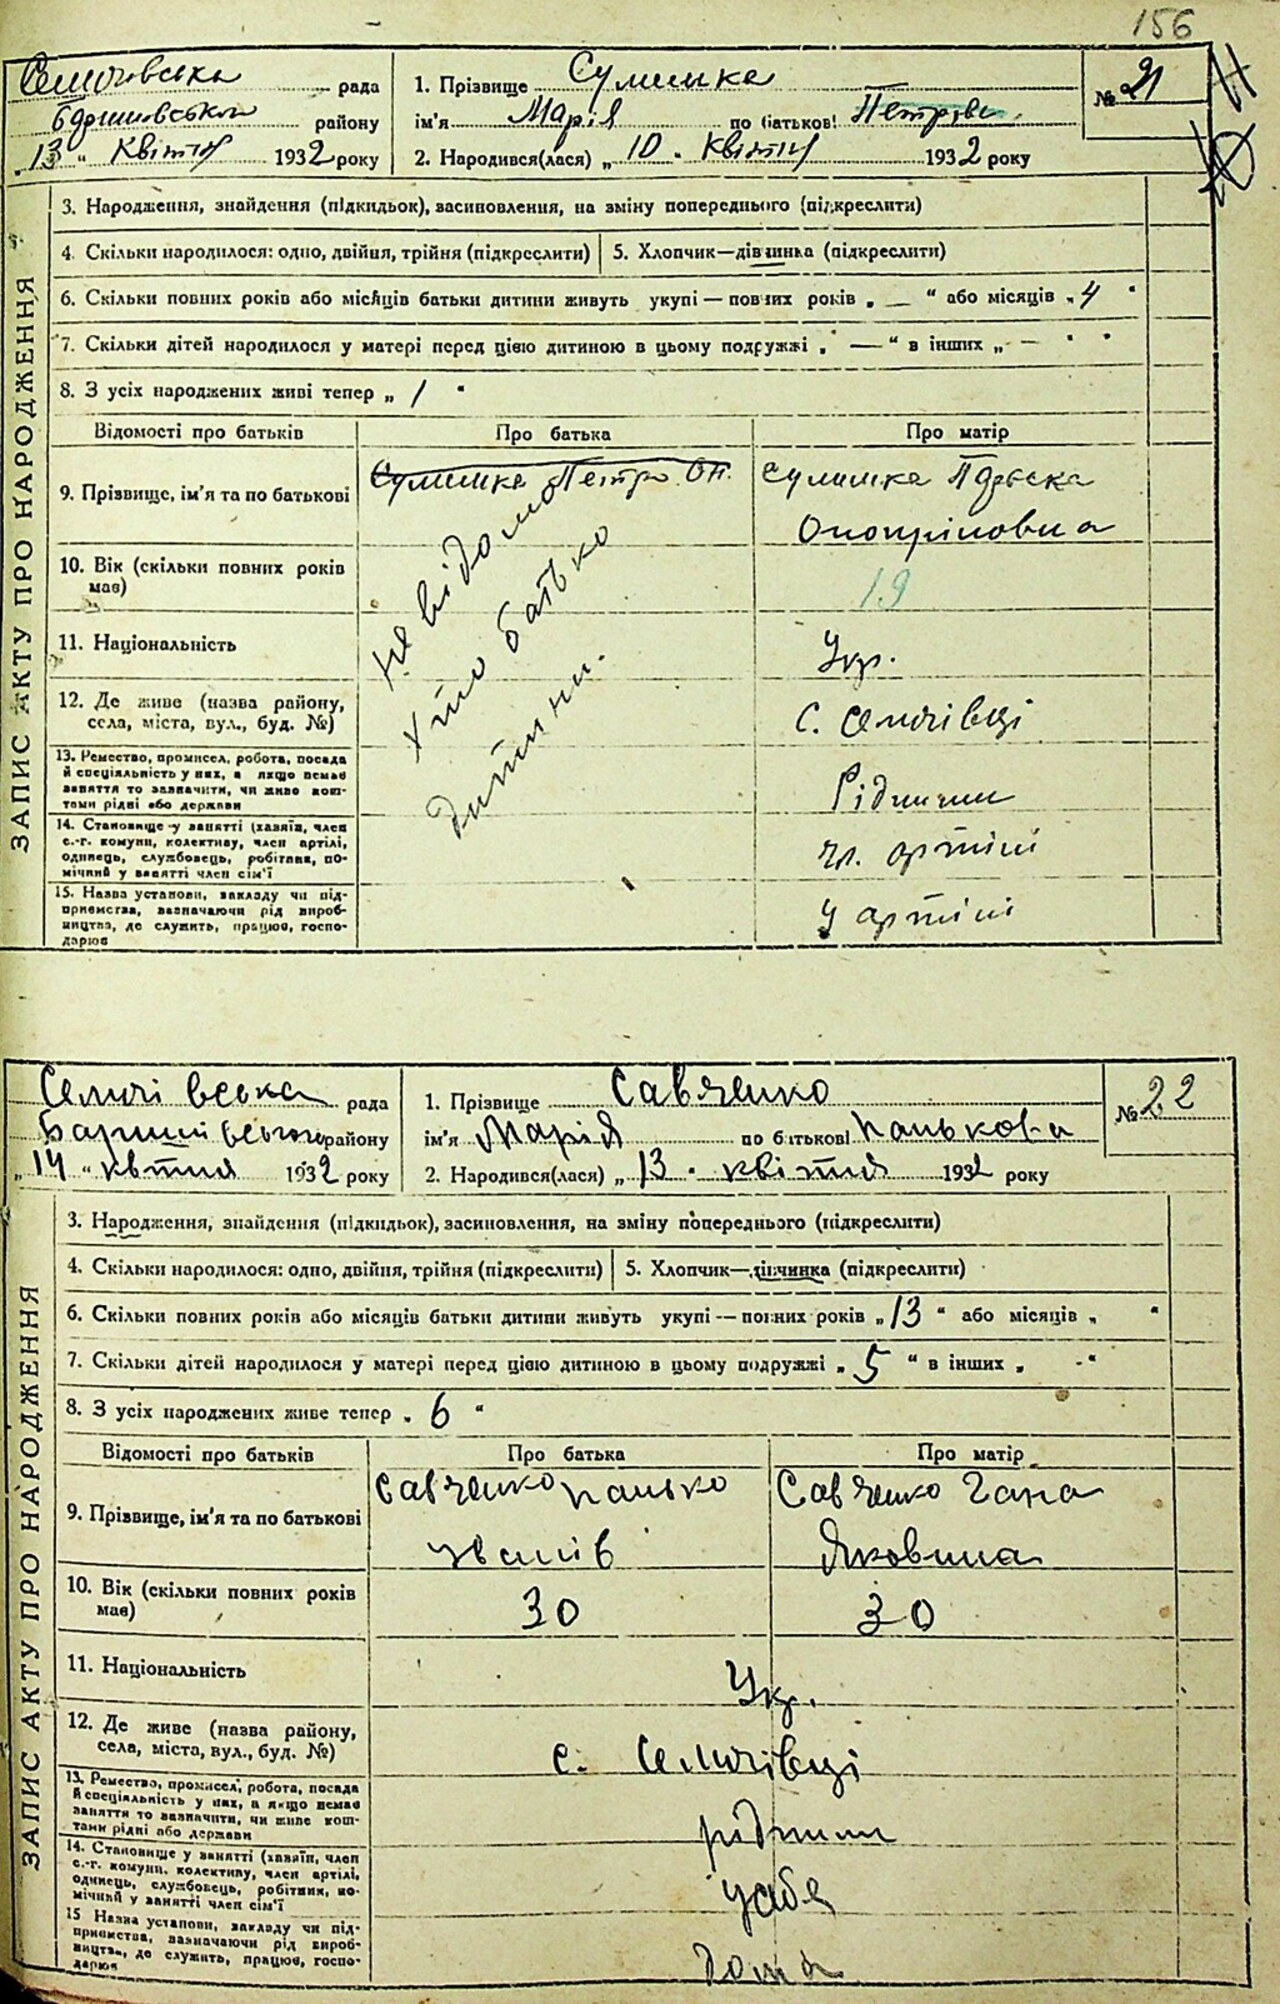 156
Семчовська рада
Баришовського району
„13“ Квітня 1932 року
1. Прізвище Сулимка
ім'я Марія по батькові Петрівн.
2. Народився(лася) „10“ Квітня 1932 року
№ 21
ЗАПИС АКТУ ПРО НАРОДЖЕННЯ
3. Народження, знайдення (підкидьок), засиновлення, на зміну попереднього (підкреслити)
4. Скільки народилося: одно, двійня, трійня (підкреслити) 5. Хлопчик—дівчинка (підкреслити)
6. Скільки повних років або місяців батьки дитини живуть укупі — повних років „ — “ або місяців „ 4 “
7. Скільки дітей народилося у матері перед цією дитиною в цьому подружжі „ — “ в інших „ — “
8. З усіх народжених живі тепер „ 1 “
Відомості про батьків Про батька Про матір
9. Прізвище, ім'я та по батькові Сулимка Петро Он. Сулимка Пдрьска
Оноприновна
10. Вік (скільки повних років має) 19
Не відомо
хто батько
дитини.
11. Національність Укр.
12. Де живе (назва району, села, міста, вул., буд. №) с. Семчівці
13. Ремество, промисел, робота, посада
й спеціяльність у них, а якщо немає
заняття то зазначити, чи живе кош-
тами рідні або держави Рідними
14. Становище у занятті (хазяїн, член
с.-г. комуни, колективу, член артілі,
одинець, службовець, робітник, по-
мічний у занятті член сім'ї чл. артілі
15. Назва установи, закладу чи під-
приємства, зазначаючи рід вироб-
ництва, де служить, працює, госпо-
дарює у артілі
Семчівська рада
Баришівського району
„14“ квтня 1932 року
1. Прізвище Савченко
ім'я Марія по батькові Панькова
2. Народився(лася) „13“ квітня 1932 року
№ 22
ЗАПИС АКТУ ПРО НАРОДЖЕННЯ
3. Народження, знайдення (підкидьок), засиновлення, на зміну попереднього (підкреслити)
4. Скільки народилося: одно, двійня, трійня (підкреслити) 5. Хлопчик—дівчинка (підкреслити)
6. Скільки повних років або місяців батьки дитини живуть укупі — повних років „ 13 “ або місяців „ “
7. Скільки дітей народилося у матері перед цією дитиною в цьому подружжі „ 5 “ в інших „ -“
8. З усіх народжених живе тепер „ 6 “
Відомості про батьків Про батька Про матір
9. Прізвище, ім'я та по батькові Савченко Панько Савченко Гана
Яковина
10. Вік (скільки повних рохів має) 30 30
11. Національність Укр.
12. Де живе (назва району, села, міста, вул., буд. №) с. Семчівці
13. Ремество, промисел, робота, посада
й спеціяльність у них, а якщо немає
заняття то зазначити, чи живе кош-
тами рідні або держави рідними
14. Становище у занятті (хазяїн, член
с.-г. комуни, колективу, член артілі,
одинець, службовець, робітник, по-
мічний у занятті член сім'ї у себе
15 Назва установи, закладу чи під-
приємства, зазначаючи рід вироб-
ництва, де служить, працює, госпо-
дарює дома